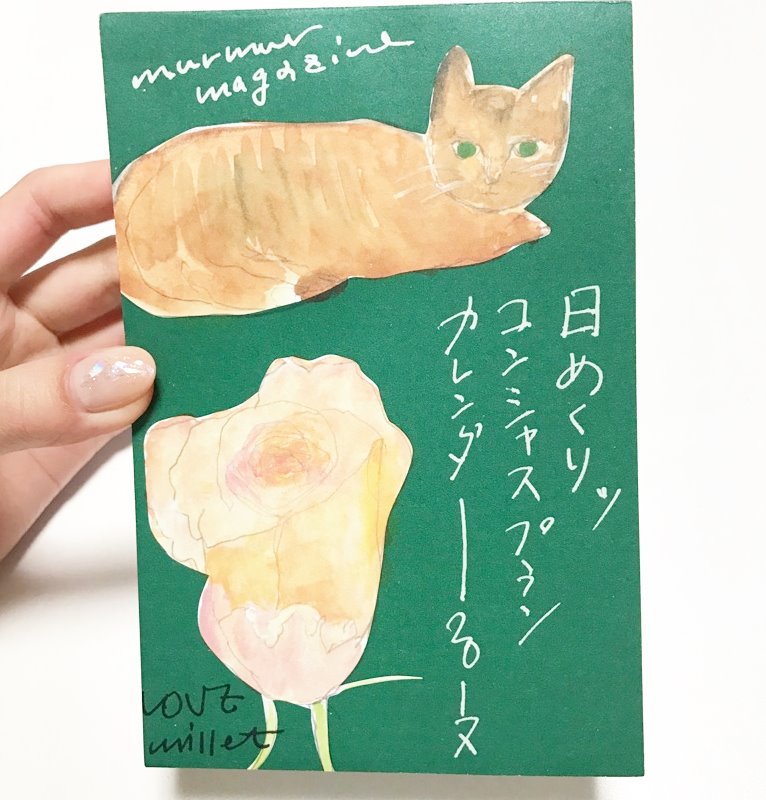 murmur
magazine
日めくりッ
コンシャスプラン
カレンダーるーヌ
LOVE
millet